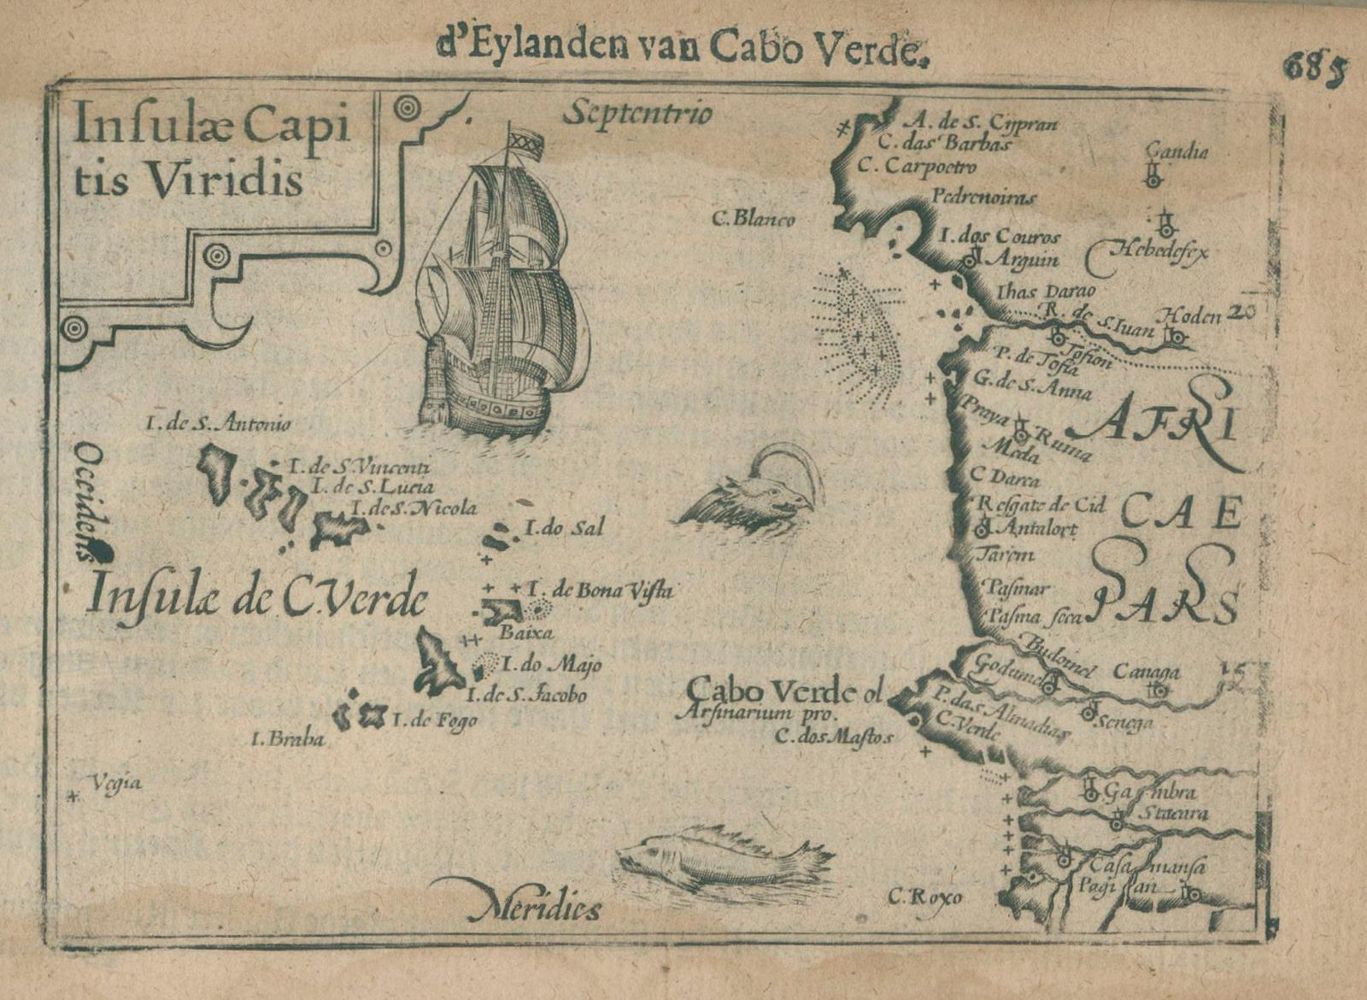 d'Eylanden van Cabo Verde.
685
Inſulæ Capi
tis Viridis
Septentrio
A. de S. Cypran
C. das Barbas
C. Carpoetro
Gandia
Pedrenoiras
C. Blanco
I. dos Couros
Arguin
Hebedefex
Ilhas Darao
R. de S. Iuan
Hoden
20
Tofion
P. de Tofia
G. de S. Anna
AFRI
CAE
PARS
Praya
Ruma
Meda
C Darca
Reſgate de Cid
Antalort
Tarem
Palmar
Palma ſeca
Budomel
Godume
Canaga
15
I. de S. Antonio
I. de S. Vincenti
I. de S. Lucia
I. de S. Nicola
Occidens
I. do Sal
Inſulæ de C. Verde
I. de Bona Viſta
Baixa
I. do Majo
I. de S. Jacobo
I. de Fogo
I. Braba
Vegia
Cabo Verde ol
Arſinarium pro.
C. dos Maſtos
P. das Almadias
C. Verde
Senega
Gambra
Stacura
Caſamanſa
Pagiſan
C. Roxo
Meridies